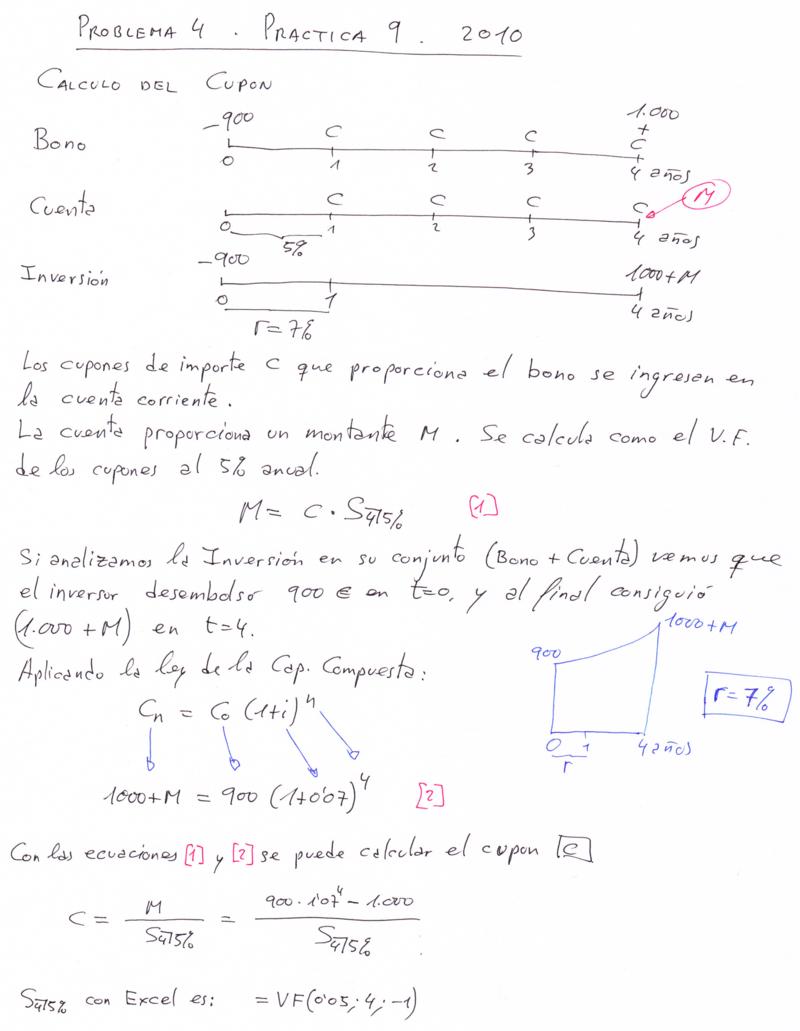 PROBLEMA 4 . PRACTICA 9 . 2010
CALCULO DEL CUPON
Bono
-900 C C C 1.000 + C
0 1 2 3 4 años
Cuenta
C C C C M
0 1 2 3 4 años
5%
Inversión
-900 1000+M
0 1 4 años
r=7%
Los cupones de importe C que proporciona el bono se ingresan en
la cuenta corriente.
La cuenta proporciona un montante M. Se calcula como el V.F.
de los cupones al 5% anual.
M = C · S4̅|5% [1]
Si analizamos la Inversión en su conjunto (Bono + Cuenta) vemos que
el inversor desembolsó 900 € en t=0, y al final consiguió
(1.000 + M) en t=4.
Aplicando la ley de la Cap. Compuesta:
900 1000+M
0 1 4 años
r
r=7%
Cn = Co (1+i)^n
1000+M = 900 (1+0'07)^4 [2]
Con las ecuaciones [1] y [2] se puede calcular el cupon C
C = M / S4̅|5% = 900 · 1'07^4 - 1.000 / S4̅|5%
S4̅|5% con Excel es: =VF(0'05; 4; -1)